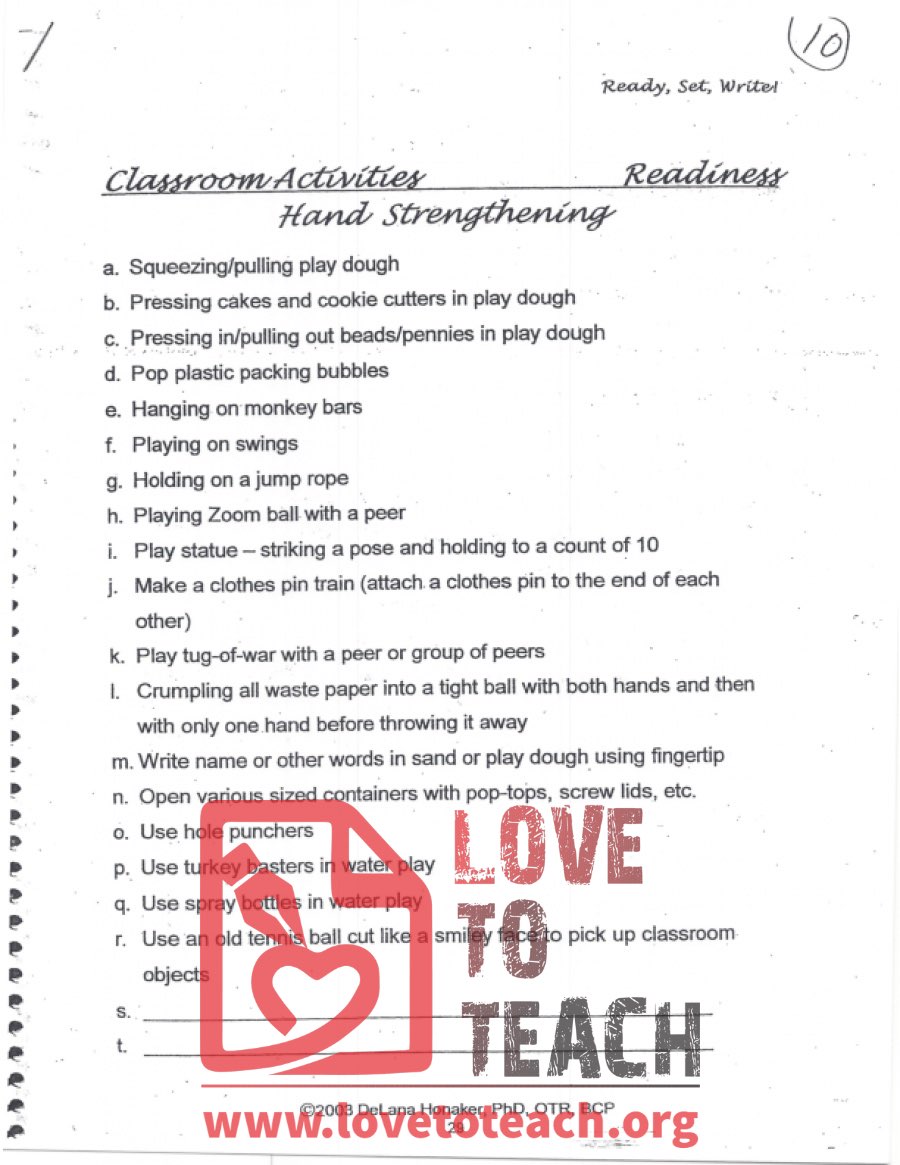 10
Ready, Set, Write!
Classroom Activities Readiness
Hand Strengthening
a. Squeezing/pulling play dough
b. Pressing cakes and cookie cutters in play dough
c. Pressing in/pulling out beads/pennies in play dough
d. Pop plastic packing bubbles
e. Hanging on monkey bars
f. Playing on swings
g. Holding on a jump rope
h. Playing Zoom ball with a peer
i. Play statue – striking a pose and holding to a count of 10
j. Make a clothes pin train (attach a clothes pin to the end of each
other)
k. Play tug-of-war with a peer or group of peers
l. Crumpling all waste paper into a tight ball with both hands and then
with only one hand before throwing it away
m. Write name or other words in sand or play dough using fingertip
n. Open various sized containers with pop-tops, screw lids, etc.
o. Use hole punchers
p. Use turkey basters in water play
q. Use spray bottles in water play
r. Use an old tennis ball cut like a smiley face to pick up classroom
objects
s.
t.
LOVE
TO
TEACH
©2003 DeLana Honaker, PhD, OTR, BCP
29
www.lovetoteach.org